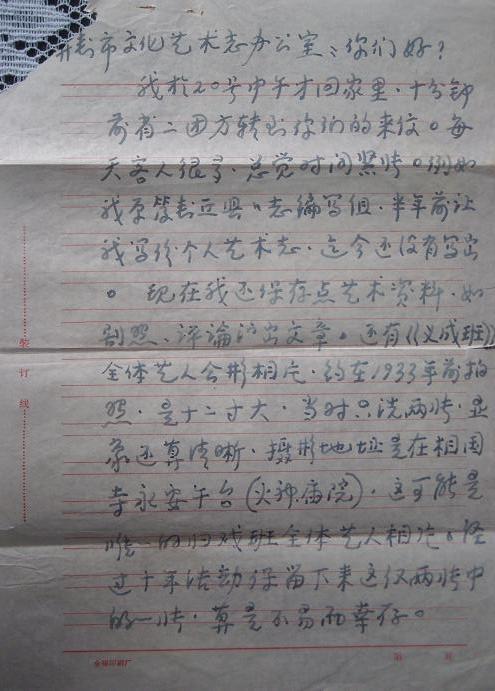 开封市文化艺术志办公室：你们好？
我于20号中午才回家里，十分钟
前省二团方转到你们的来信。每
天客人很多，总觉时间紧张。例如
我原封丘县志编写组，半年前让
我写份个人艺术志，迄今还没有写出
。现在我还保存点艺术资料，如
剧照、评论演出文章。还有《义成班》
全体艺人合影相片，约在1933年前拍
照，是十二寸大，当时只洗两张，显
象还算清晰，摄影地址是在相国
寺永安午台（火神庙院），这可能是
唯一的旧戏班全体艺人相片。经
过十年浩劫保留下来这仅两张中
的一张，算是不易而幸存。
装订线
第 页